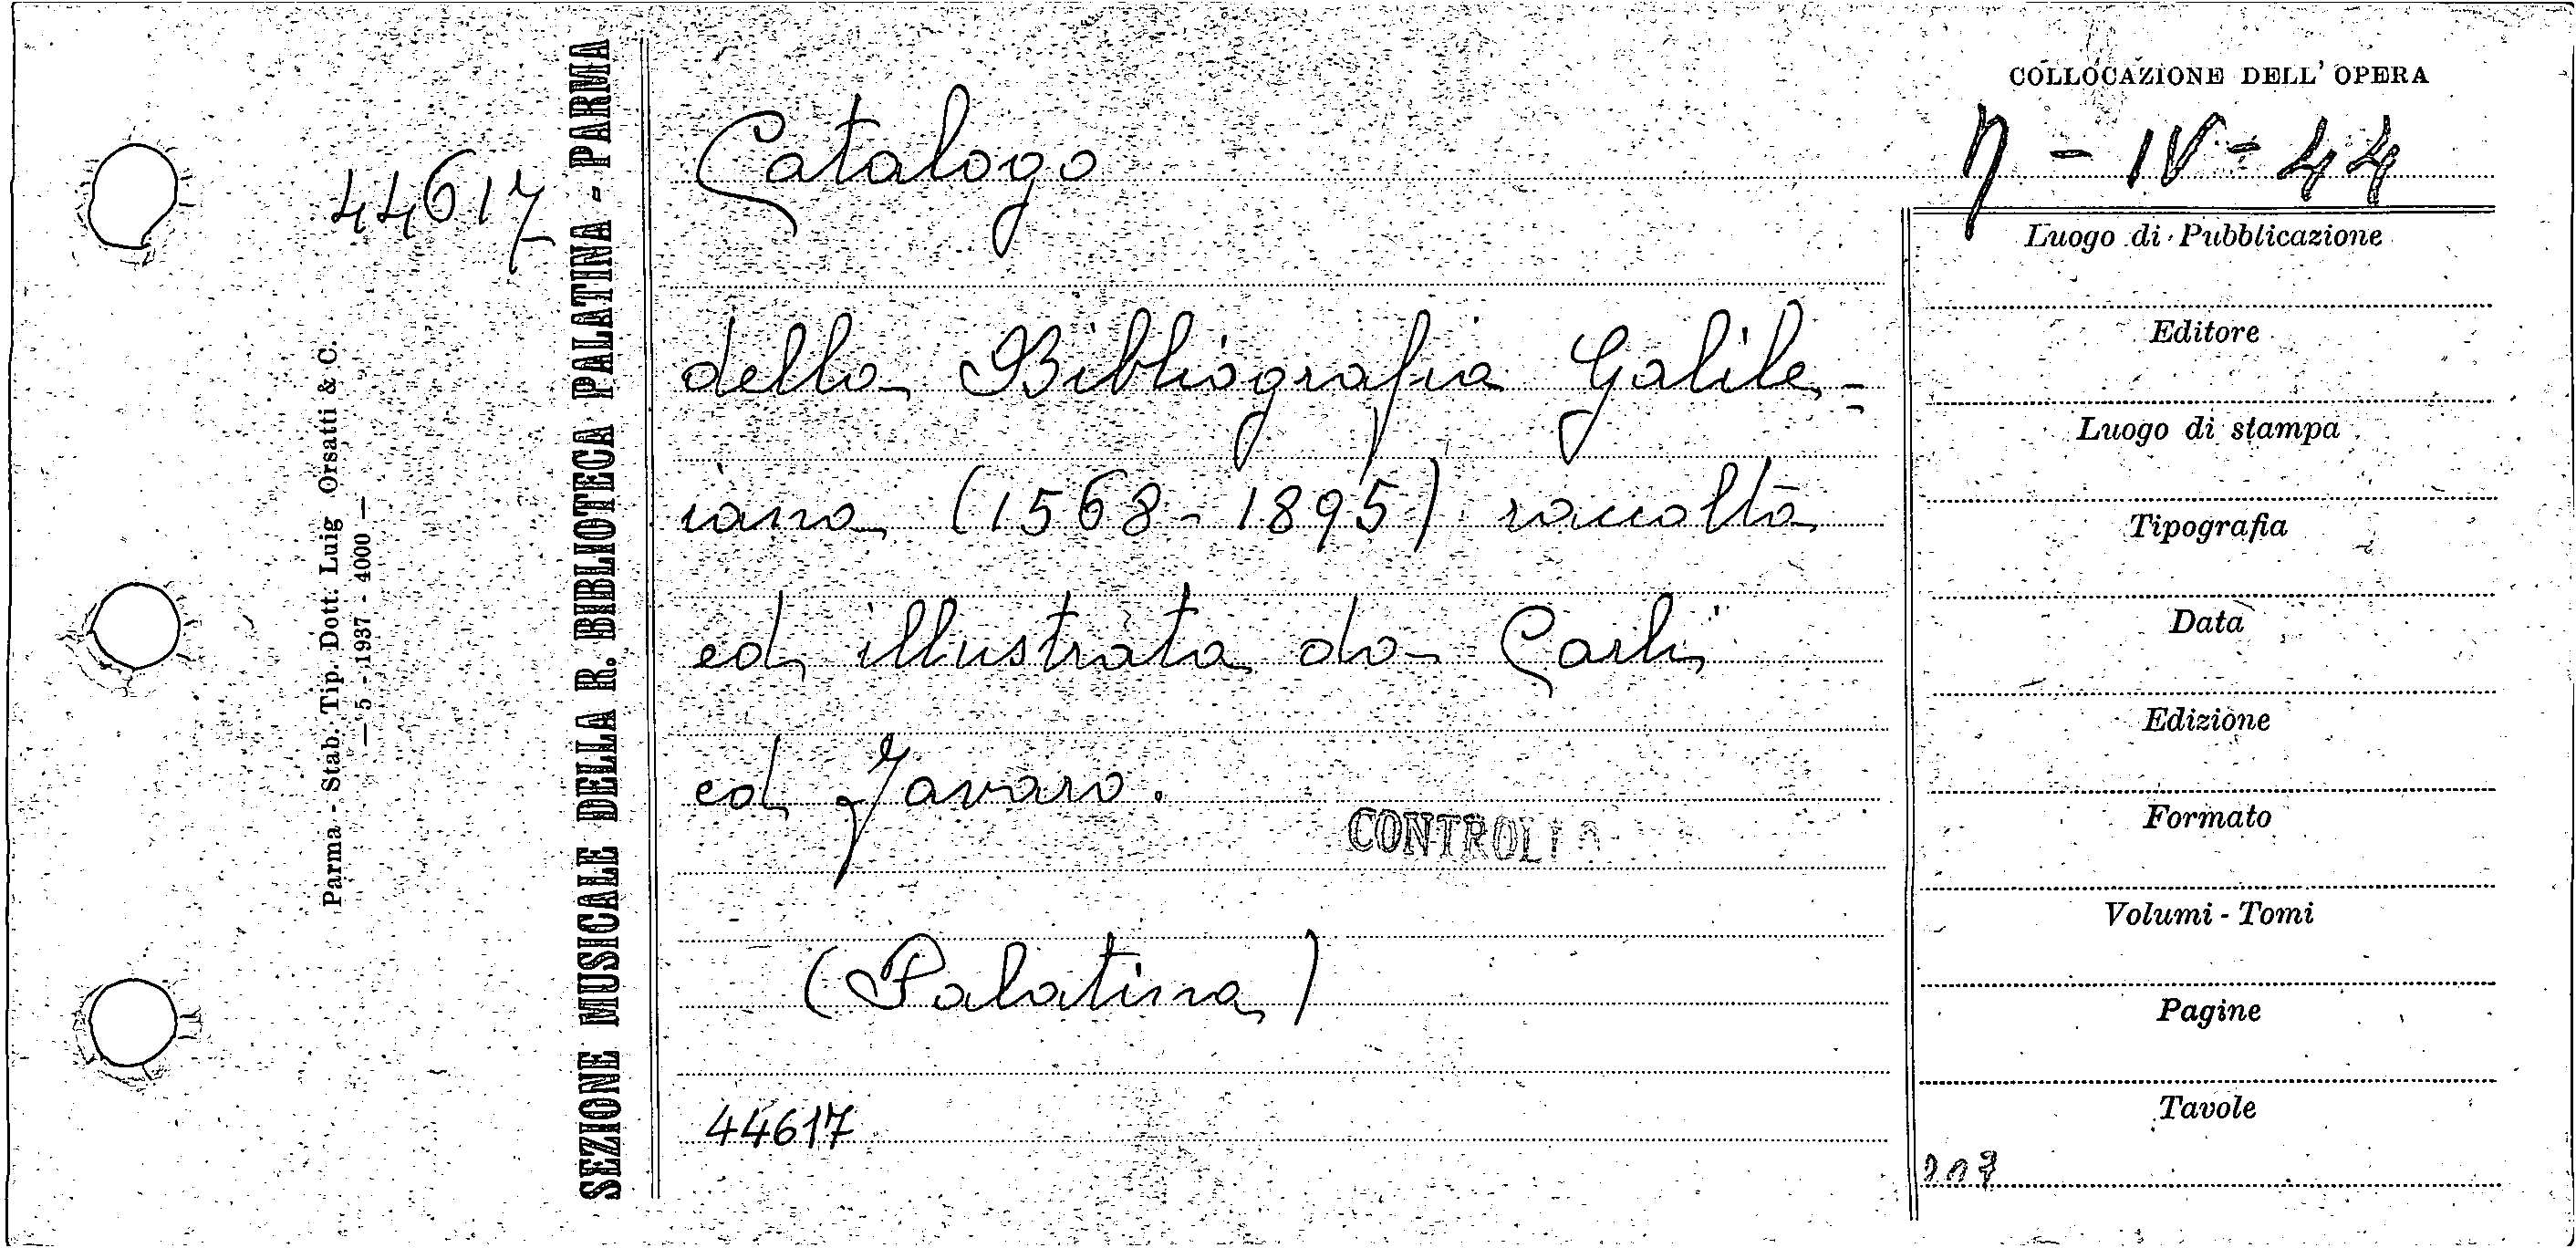 COLLOCAZIONE DELL' OPERA
η - IV - 44
44617
SEZIONE MUSICALE DELLA R. BIBLIOTECA PALATINA - PARMA
Parma - Stab. Tip. Dott. Luig Orsatti & C.
— 5 - 1937 - 4000 —
Catalogo
della Bibliografia Galile-
iana (1568-1895) raccolta
ed illustrata da Carli
ed Favaro.
CONTROLLA
(Palatina)
44617
Luogo di Pubblicazione
Editore
Luogo di stampa
Tipografia
Data
Edizione
Formato
Volumi - Tomi
Pagine
Tavole